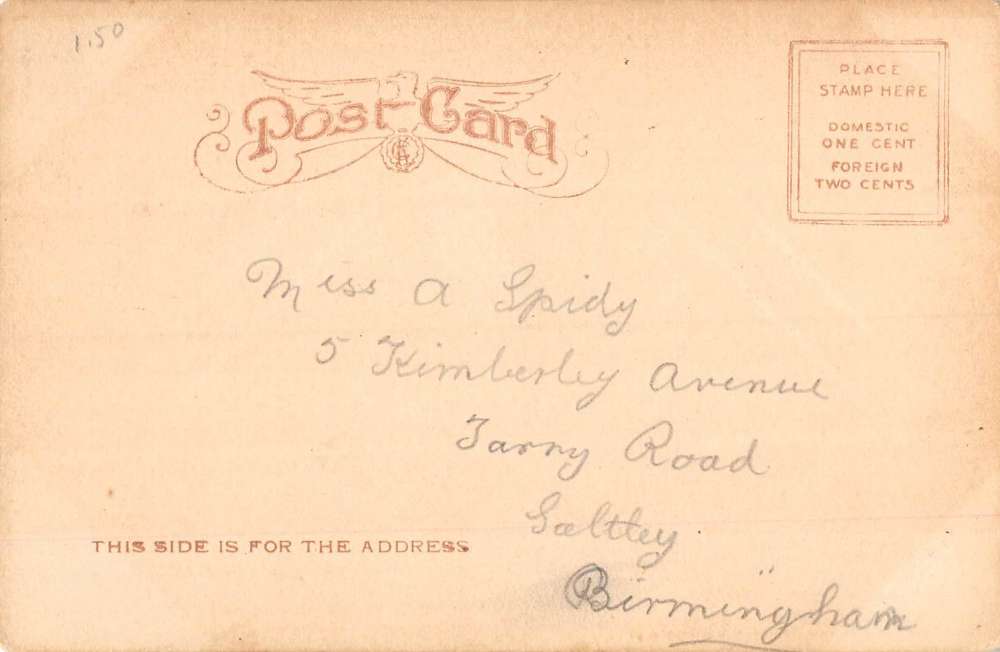 1.50
Post Card
PLACE
STAMP HERE
DOMESTIC
ONE CENT
FOREIGN
TWO CENTS
Miss A Spidy
5 Kimberley Avenue
Tarry Road
Saltley
Birmingham
THIS SIDE IS FOR THE ADDRESS